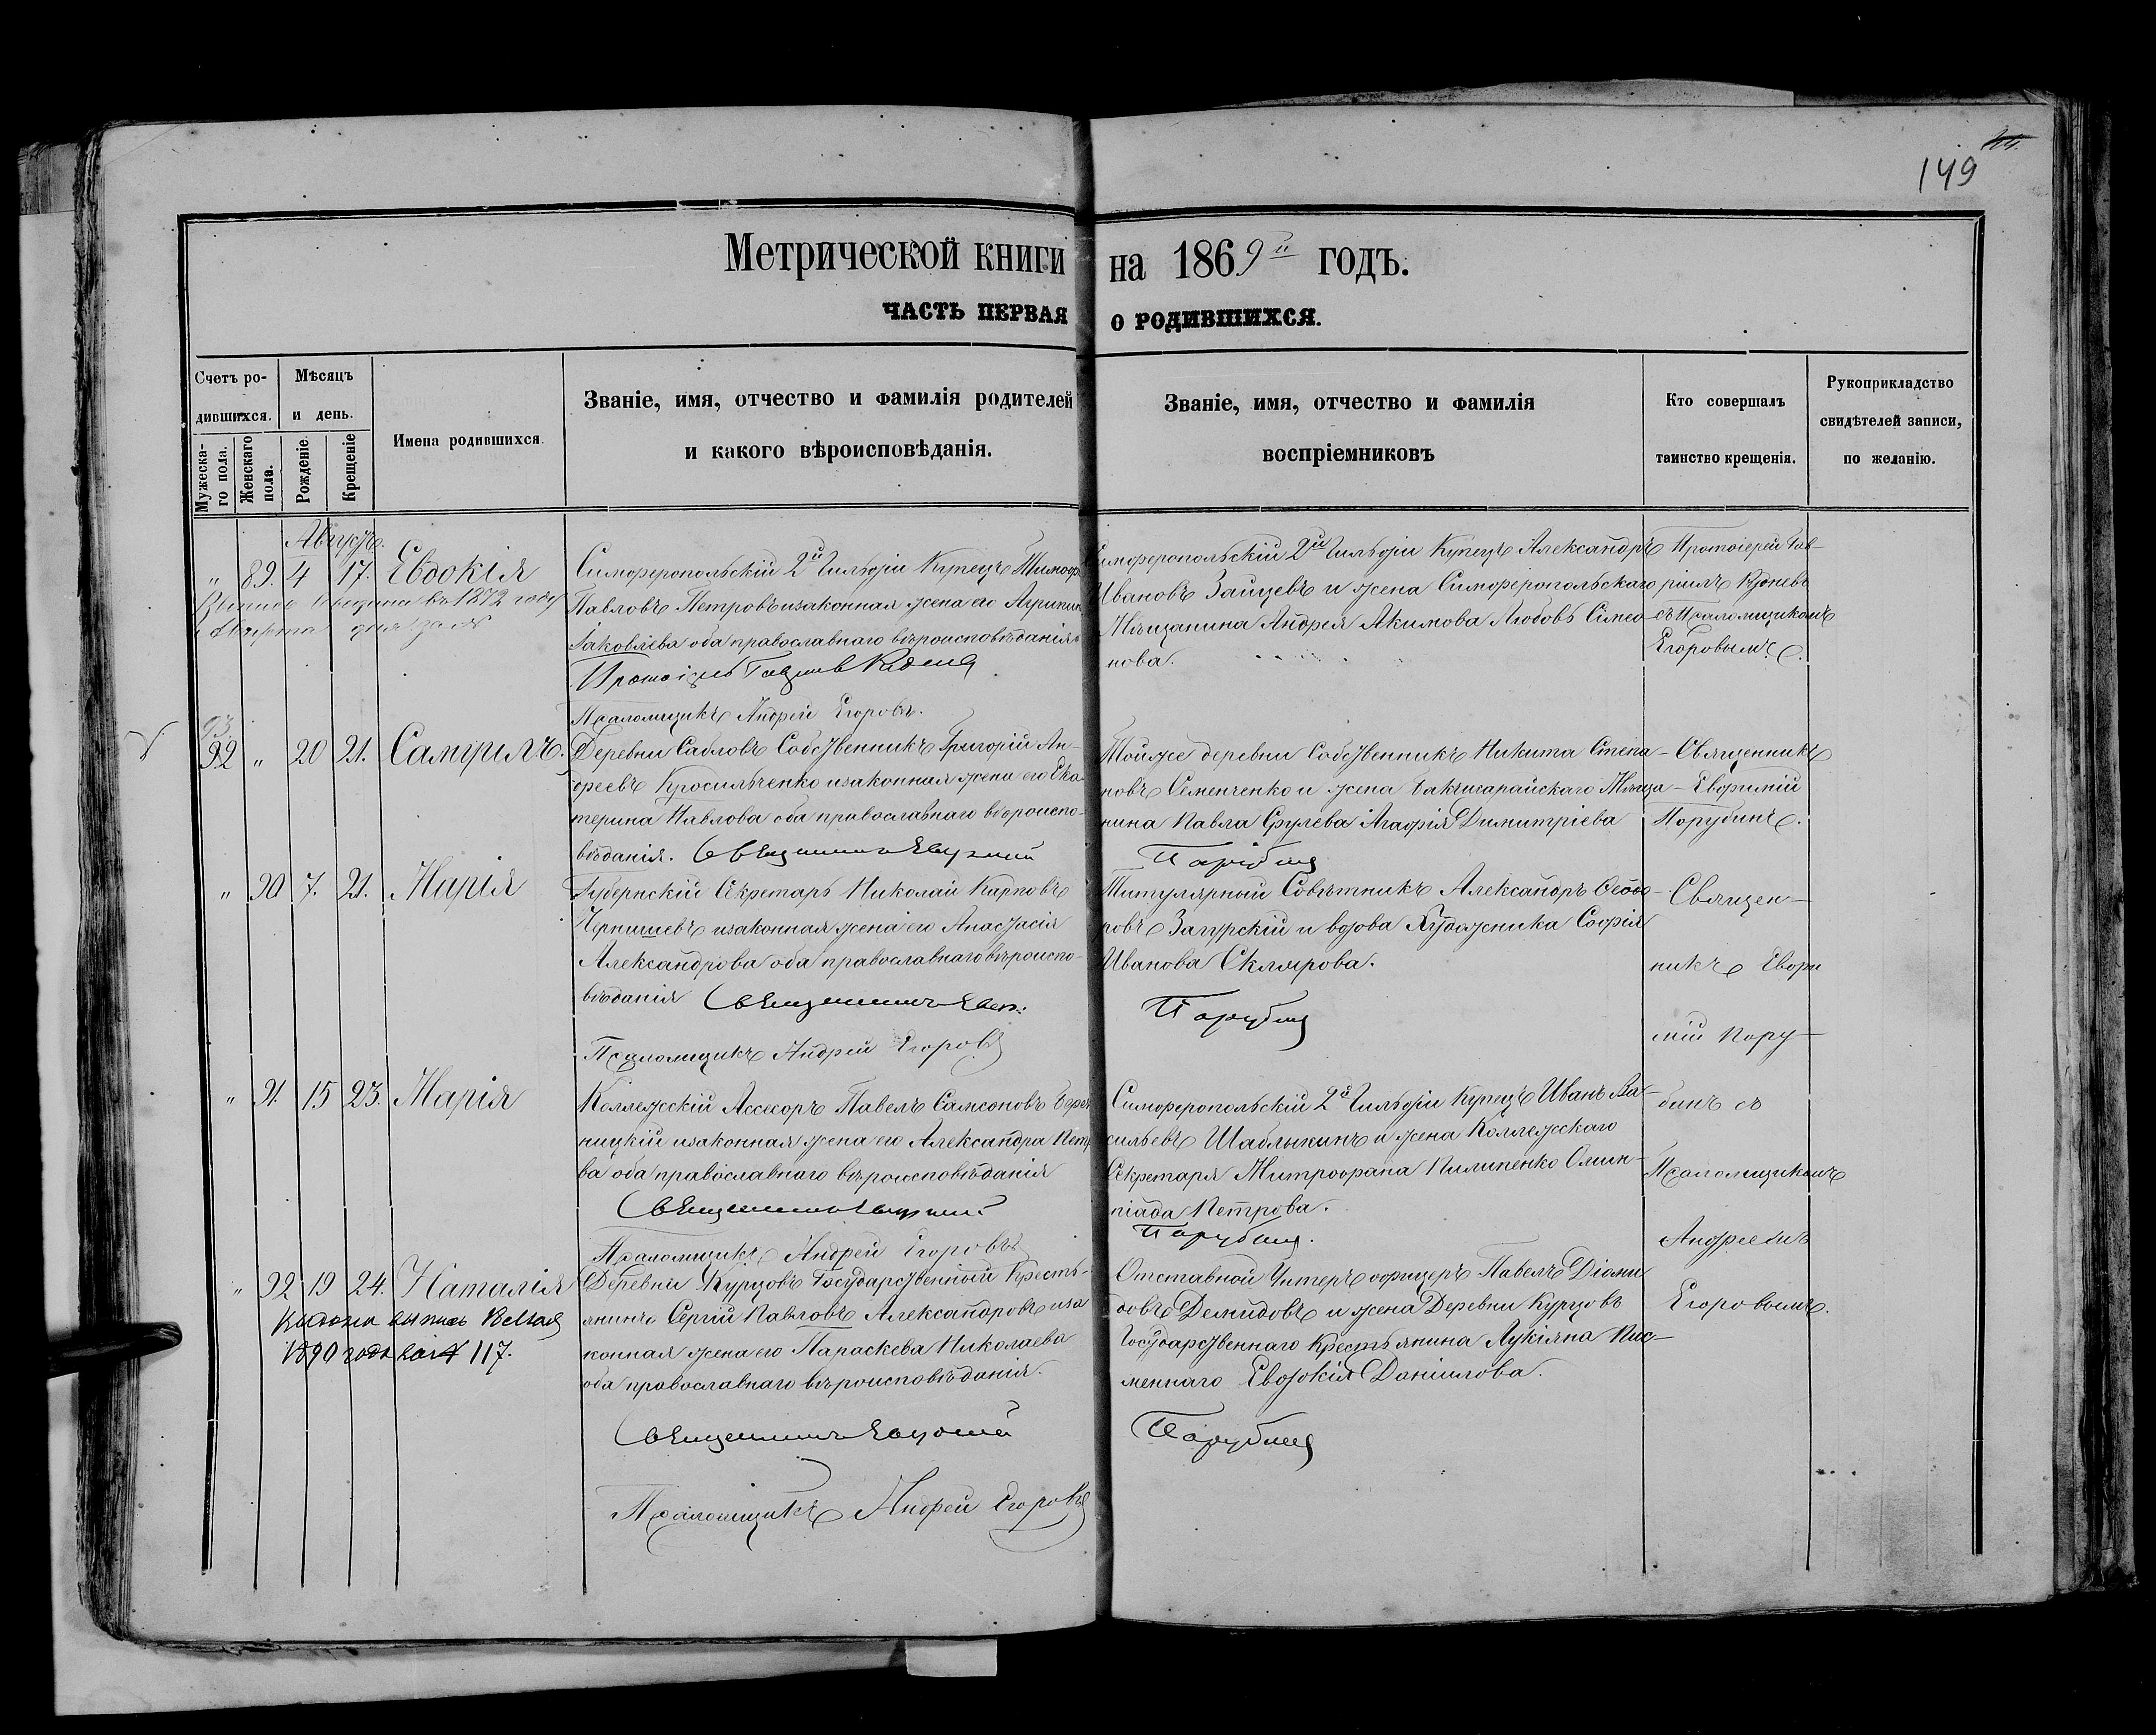 149
Метрической книги на 1869й годъ.
ЧАСТЬ ПЕРВАЯ О РОДИВШИХСЯ.
Счетъ родившихся.
Мужескаго пола.
Женскаго пола.
Мѣсяцъ и день.
Рожденіе.
Крещеніе
Имена родившихся.
Званіе, имя, отчество и фамилія родителей
и какого вѣроисповѣданія.
Званіе, имя, отчество и фамилія
воспріемниковъ
Кто совершалъ
таинство крещенія.
Рукоприкладство
свидѣтелей записи,
по желанію.
Августъ.
„ 89. 4 17. Евдокія
въ 1872 году
Симферопольскій 2й Гильдіи Купецъ Тимоф
Павловъ Петровъ и законная жена его
Іаковлева оба православнаго вѣроисповѣданія
Протоіерей
Псаломщикъ Андрей Егоровъ.
Симферопольскій 2й Гильдіи Купецъ Александръ
Ивановъ Зайцевъ и жена Симферопольскаго
Мѣщанина Андрея Акимова Любовь Симео
нова.
Протоіерей Гав-
ріилъ
съ Псаломщикомъ
Егоровымъ.
93.
92 „ 20 21. Самуилъ.
Деревни Сабловъ Собственникъ Григорій Ан-
дреевъ и законная жена его Ека-
терина Павлова оба православнаго вѣроиспо-
вѣданія. Священникъ Евфимій
Тойже деревни Собственникъ Никита Степа-
новъ Семенченко и жена Бакчисарайскаго Мѣща-
нина Павла Агафія Димитріева
Парубинъ
Священникъ
Евфимій
Порубинъ.
„ 90 7. 21. Марія
Губернскій Секретарь Николай Карповъ
Чернишевъ и законная жена его Анастасія
Александрова оба православнаго вѣроиспо-
вѣданія Священникъ Евф:
Псаломщикъ Андрей Егоровъ
Титулярный Совѣтникъ Александръ Ѳедо-
ровъ Загурскій и вдова Художника Софія
Иванова Склярова.
Парубинъ
Священ-
никъ Евфи
мій Пору-
бинъ съ
Псаломщикомъ
Андреемъ
Егоровымъ.
„ 91. 15 23. Марія
Коллежскій Ассесоръ Павелъ Самсоновъ
ницкій и законная жена его Александра Петр
ва оба православнаго вѣроисповѣданія
Священникъ Евфимій
Псаломщикъ Андрей Егоровъ
Симферопольскій 2й Гильдіи Купецъ Иванъ Ва-
сильевъ Шаблыкинъ и жена Коллежскаго
Секретаря Митрофана Пилипенко Олим-
піада Петрова.
Парубинъ.
„ 92 19 24. Наталія
1890 года 117.
Деревни Курцовъ Государственный Кресть-
янинъ Сергій Павловъ Александровъ и за
конная жена его Параскева Николаева
оба православнаго вѣроисповѣданія.
Священникъ Евфимій
Псаломщикъ Андрей Егоровъ
Отставной Унтеръ офицеръ Павелъ Діоми
довъ Демидовъ и жена Деревни Курцовъ
Государственнаго Крестьянина Лукіяна Пис-
меннаго Евдокія Даніилова.
Парубинъ